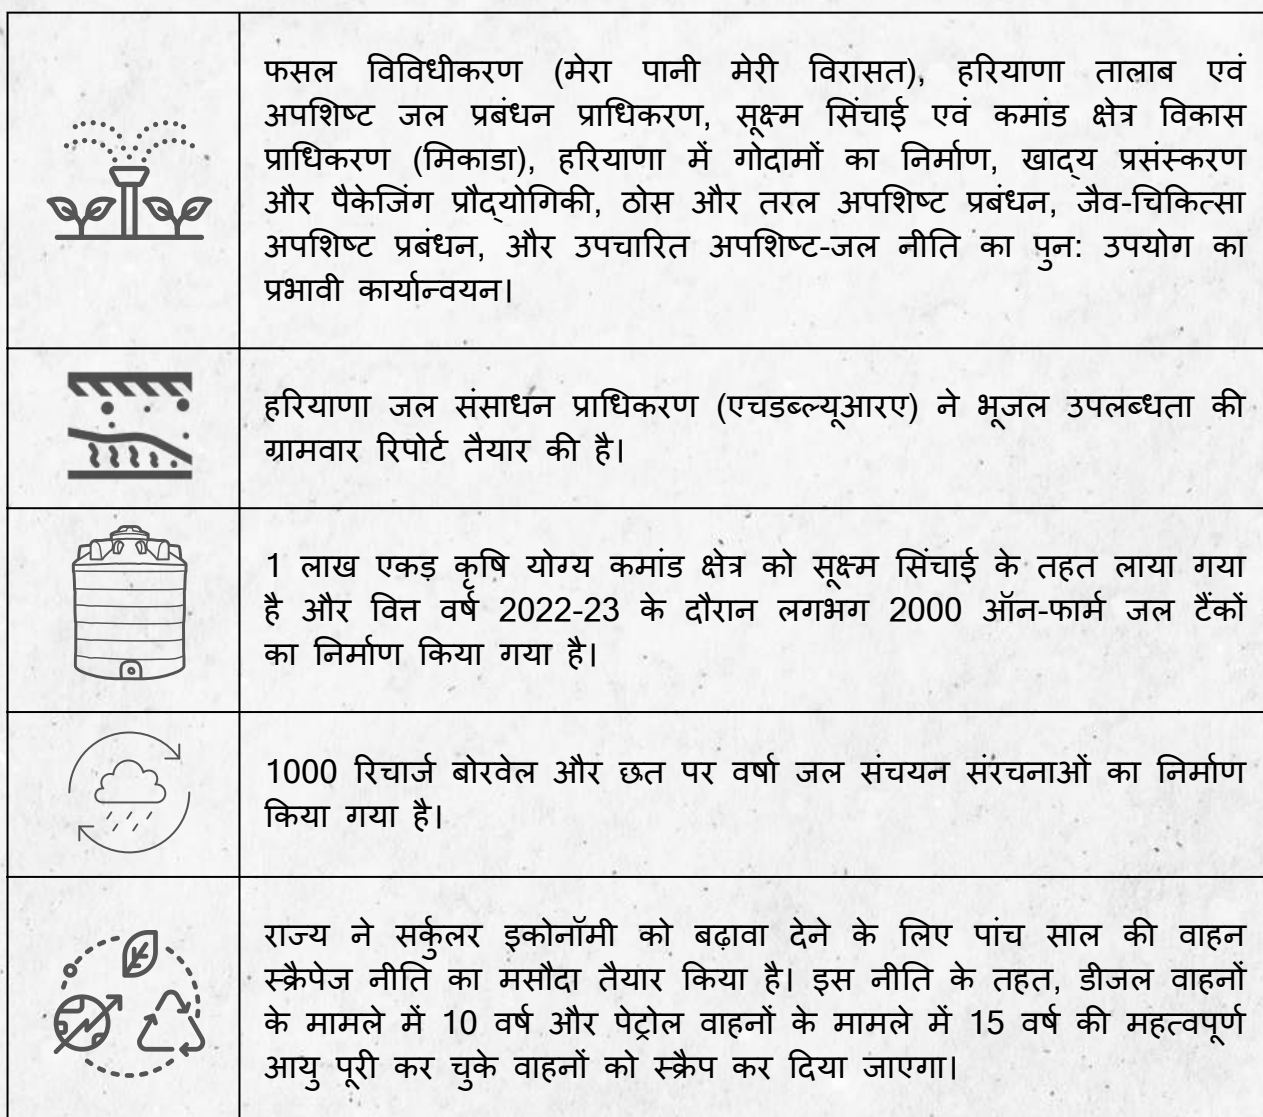 फसल विविधीकरण (मेरा पानी मेरी विरासत), हरियाणा तालाब एवं
अपशिष्ट जल प्रबंधन प्राधिकरण, सूक्ष्म सिंचाई एवं कमांड क्षेत्र विकास
प्राधिकरण (मिकाडा), हरियाणा में गोदामों का निर्माण, खाद्य प्रसंस्करण
और पैकेजिंग प्रौद्योगिकी, ठोस और तरल अपशिष्ट प्रबंधन, जैव-चिकित्सा
अपशिष्ट प्रबंधन, और उपचारित अपशिष्ट-जल नीति का पुन: उपयोग का
प्रभावी कार्यान्वयन।
हरियाणा जल संसाधन प्राधिकरण (एचडब्ल्यूआरए) ने भूजल उपलब्धता की
ग्रामवार रिपोर्ट तैयार की है।
1 लाख एकड़ कृषि योग्य कमांड क्षेत्र को सूक्ष्म सिंचाई के तहत लाया गया
है और वित्त वर्ष 2022-23 के दौरान लगभग 2000 ऑन-फार्म जल टैंकों
का निर्माण किया गया है।
1000 रिचार्ज बोरवेल और छत पर वर्षा जल संचयन संरचनाओं का निर्माण
किया गया है।
राज्य ने सर्कुलर इकोनॉमी को बढ़ावा देने के लिए पांच साल की वाहन
स्क्रैपेज नीति का मसौदा तैयार किया है। इस नीति के तहत, डीजल वाहनों
के मामले में 10 वर्ष और पेट्रोल वाहनों के मामले में 15 वर्ष की महत्वपूर्ण
आयु पूरी कर चुके वाहनों को स्क्रैप कर दिया जाएगा।